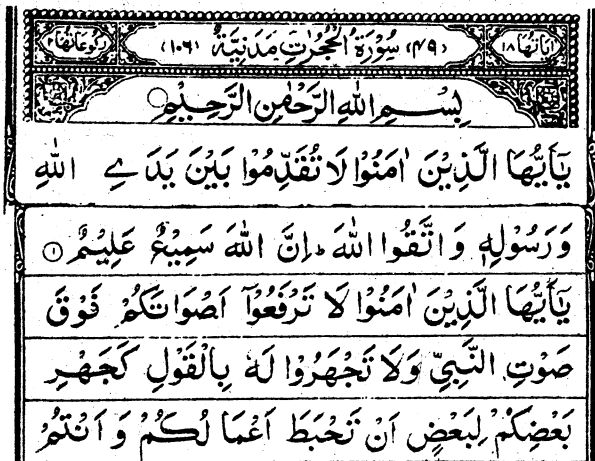 اٰيَاتُهَا ١٨ (٤٩) سُوْرَةُ الْحُجُرٰتِ مَدَنِيَّةٌ (١٠٦) رُكُوْعَاتُهَا ٢
بِسْمِ اللهِ الرَّحْمٰنِ الرَّحِيْمِ
يٰۤاَيُّهَا الَّذِيْنَ اٰمَنُوْا لَا تُقَدِّمُوْا بَيْنَ يَدَيِ اللهِ
وَرَسُوْلِهٖ وَاتَّقُوا اللهَ ؕ اِنَّ اللهَ سَمِيْعٌ عَلِيْمٌ ١
يٰۤاَيُّهَا الَّذِيْنَ اٰمَنُوْا لَا تَرْفَعُوْۤا اَصْوَاتَكُمْ فَوْقَ
صَوْتِ النَّبِيِّ وَلَا تَجْهَرُوْا لَهٗ بِالْقَوْلِ كَجَهْرِ
بَعْضِكُمْ لِبَعْضٍ اَنْ تَحْبَطَ اَعْمَالُكُمْ وَاَنْتُمْ